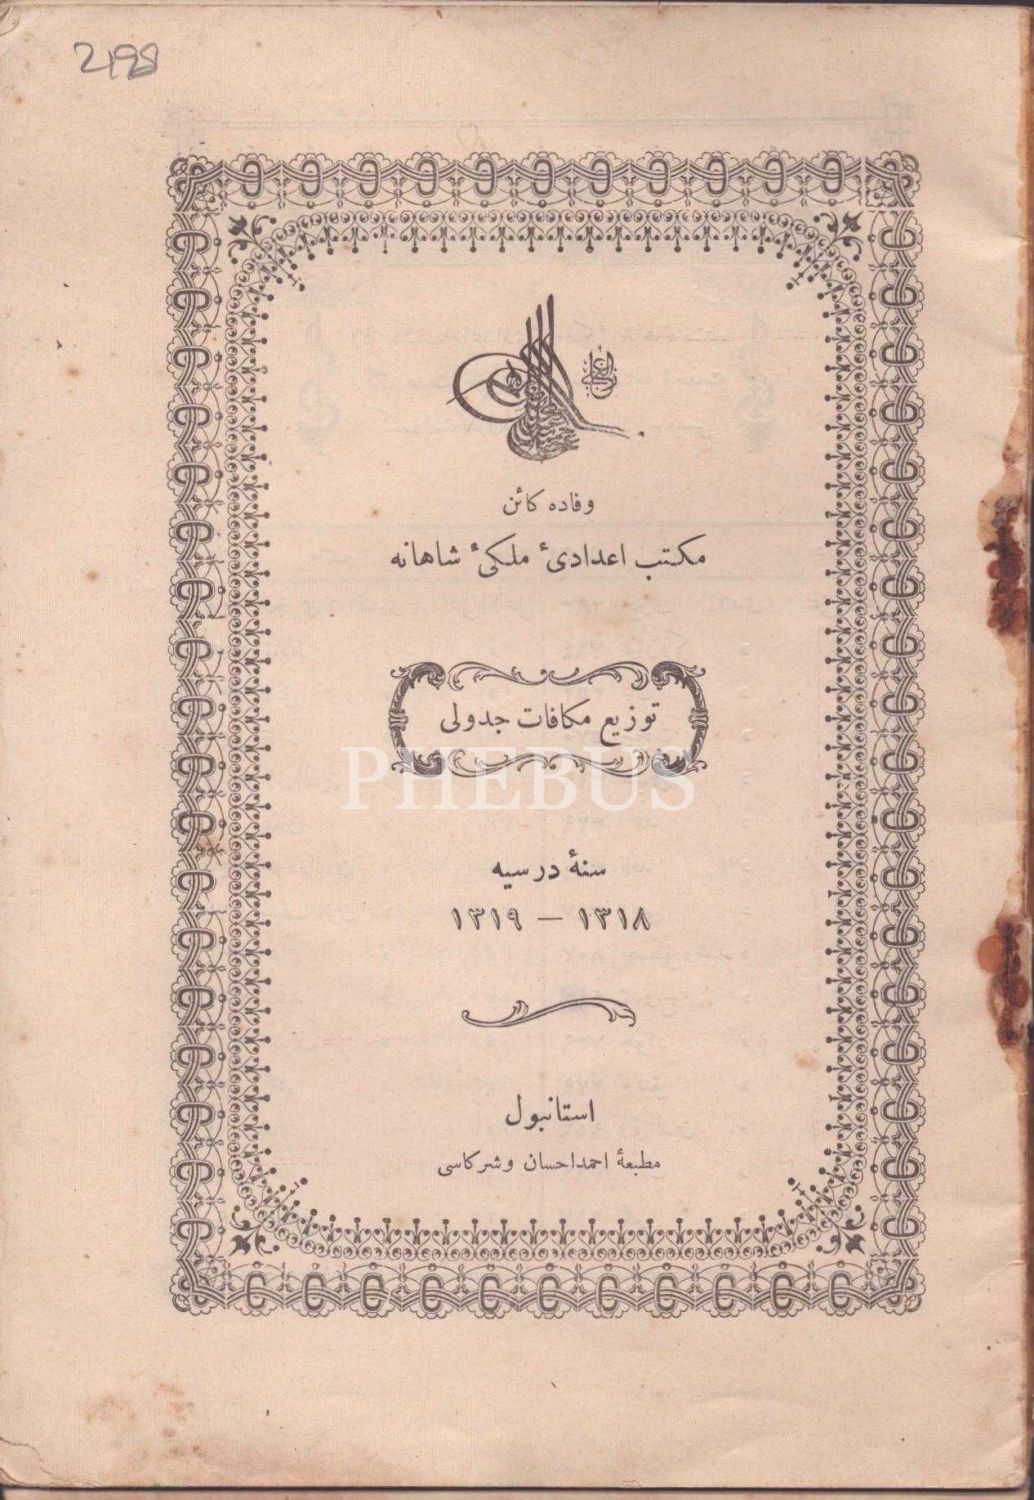 2198
وفاده كائن
مكتب اعدادیٔ ملكیٔ شاهانه
توزيع مكافات جدولی
PHEBUS
سنۀ درسيه
١٣١٨ — ١٣١٩
استانبول
مطبعۀ احمداحسان وشركاسی